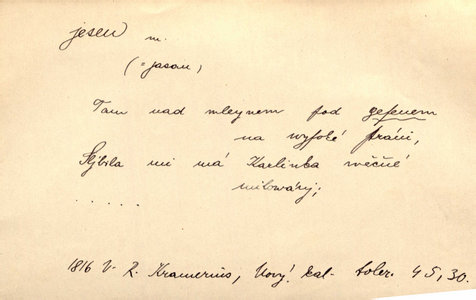 jesen m.
(= jasan)
Tam nad mleynem pod gesenem
na wysoké stráni,
Sljbila mi má Karlinka wěčné
milowánj;
.....
1816 V. R. Kramerius, Nový kal. toler. 45, 30.